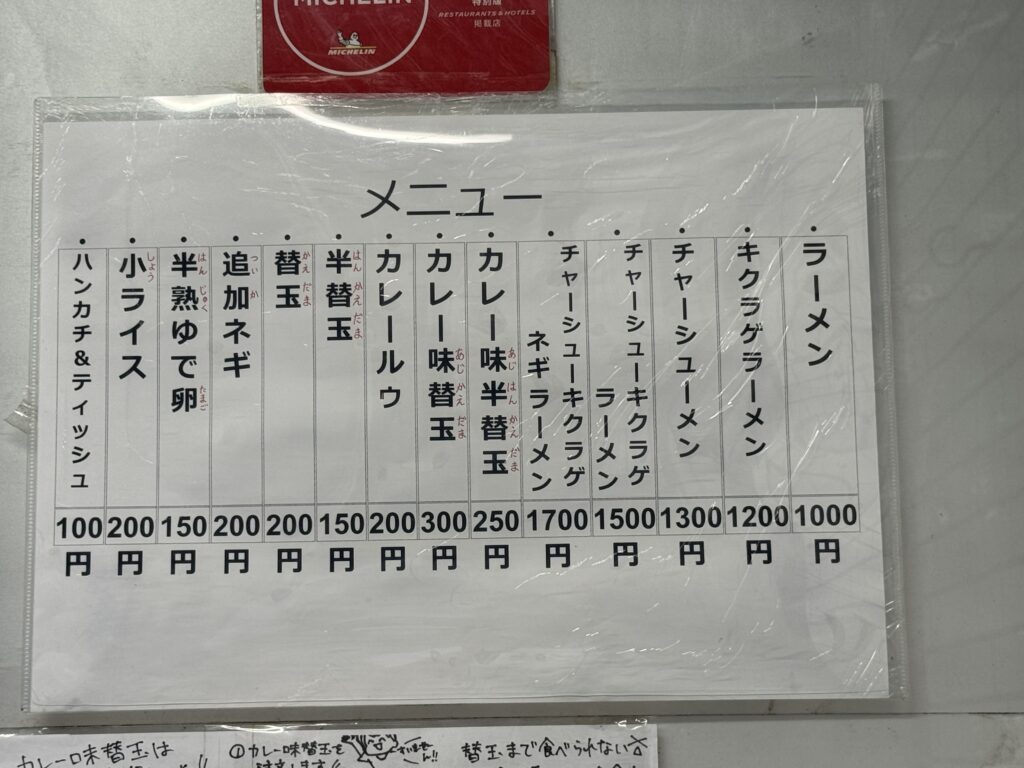 MICHELIN
特別版
RESTAURANTS & HOTELS
掲載店
MICHELIN
メニュー
・ラーメン 1000円
・キクラゲラーメン 1200円
・チャーシューメン 1300円
・チャーシューキクラゲラーメン 1500円
・チャーシューキクラゲネギラーメン 1700円
・カレー味半替玉 250円
あじ はん かえ だま
・カレー味替玉 300円
あじ かえ だま
・カレールゥ 200円
・半替玉 150円
はん かえ だま
・替玉 200円
かえ だま
・追加ネギ 200円
つい か
・半熟ゆで卵 150円
はん じゅく たまご
・小ライス 200円
しょう
・ハンカチ&ティッシュ 100円
カレー味替玉は
①カレー味替玉を
注文します!!
すいません!!
替玉まで食べられない